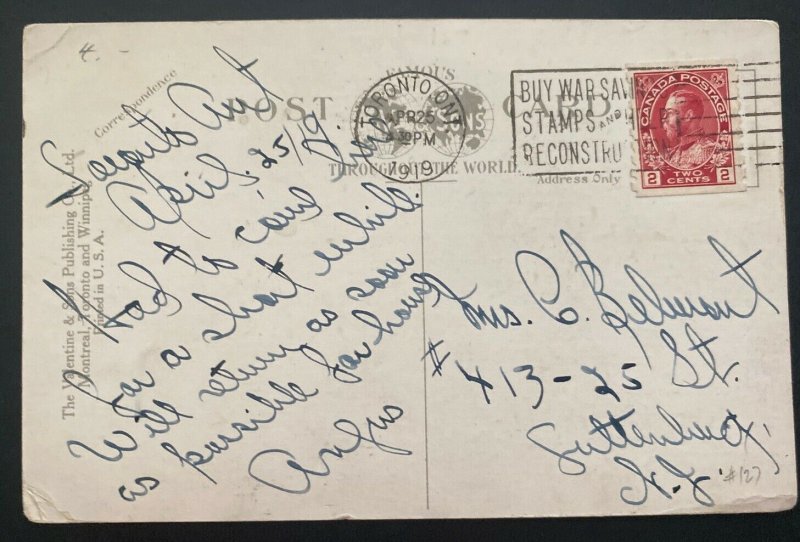 4.-
Correspondence
FAMOUS
POST CARD
THROUGHOUT THE WORLD
Address Only
The Valentine & Sons Publishing Co., Ltd.
Montreal, Toronto and Winnipeg
Printed in U. S. A.
TORONTO, ONT.
APR 25
30 PM
1919
BUY WAR SAV
STAMPS AND
RECONSTRU
CANADA POSTAGE
2 TWO CENTS 2
Toronto Ont
April 25/19.
I had to come here
for a short while.
Will return as soon
as possible for home
Angus
Mrs. C. Belmont
# 413-25 St.
Guttenburg,
N.J.
#127